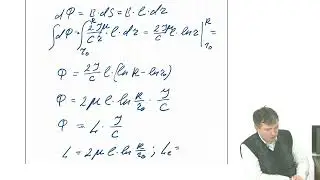 dΦ = B · dS = B · l · dr
∫dΦ = ∫_{r₀}^{R} 2Jμ/Cr · l · dr = 2Jμ/C l · ln r |_{r₀}^{R} =
Φ = 2J/C l · (ln R − ln r₀)
Φ = 2μ l · ln R/r₀ · J/C
Φ = L · J/C
L = 2μ l · ln R/r₀ ; L_e =